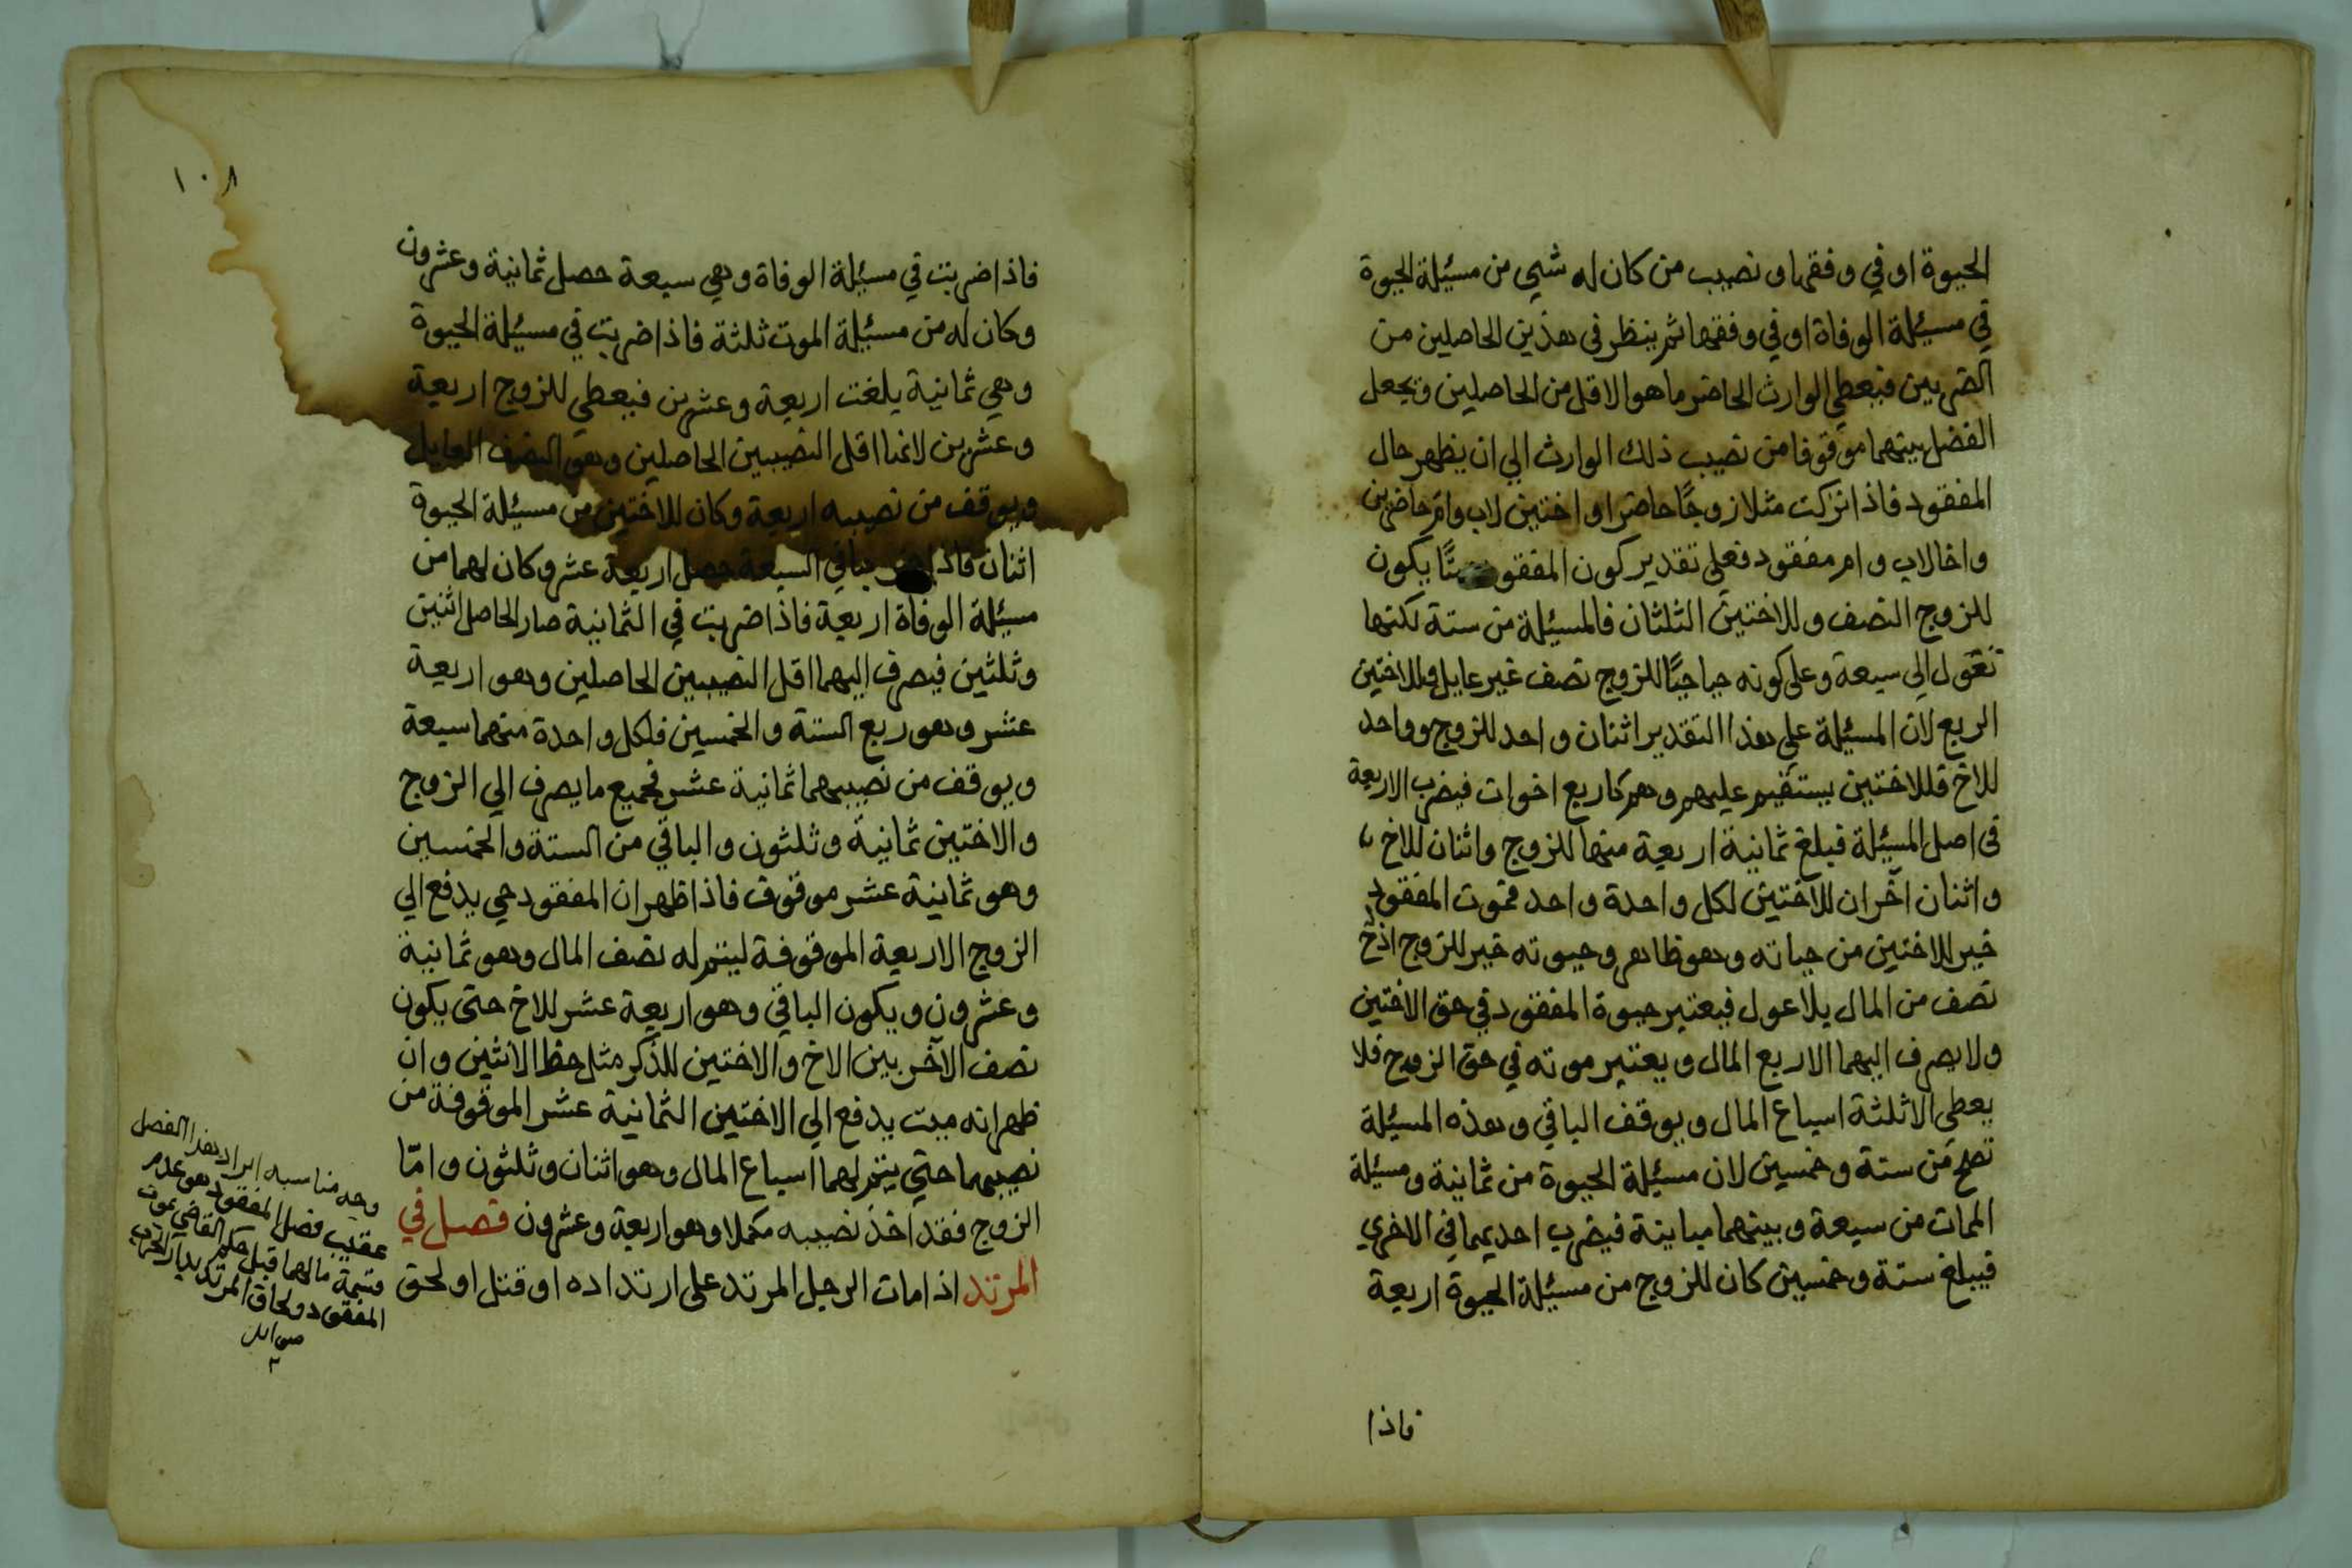 الحيوة او في وفقها و نصيب من كان له شيي من مسئلة الحيوة
في مسئلة الوفاة او في وفقها ثم ينظر في هذين الحاصلين من
الضربين فيعطي الوارث الحاضر ما هو الاقل من الحاصلين ويجعل
الفضل بينهما موقوفا من نصيب ذلك الوارث الي ان يظهر حال
المفقود فاذا تركت مثلا زوجًا حاضرا و اختين لاب وام حاضرين
واخا لاب وام مفقود فعلي تقدير كون المفقود ميتًا يكون
للزوج النصف وللاختين الثلثان فالمسئلة من ستة لكنها
تعول الي سبعة وعلي كونه حيا حيًا للزوج نصف غير عايل وللاختين
الربع لان المسئلة علي هذا التقدير اثنان واحد للزوج وواحد
للاخ فللاختين يستقيم عليهم وهم كاربع اخوات فيضرب الاربعة
في اصل المسئلة فبلغ ثمانية اربعة منها للزوج واثنان للاخ
واثنان آخران للاختين لكل واحدة واحد فموت المفقود
خير للاختين من حياته وهو ظاهر وحيوته خير للزوج اذ ح
نصف من المال بلا عول فيعتبر حيوة المفقود في حق الاختين
ولا يصرف اليهما الا ربع المال ويعتبر موته في حق الزوج فلا
يعطي الا ثلثة اسباع المال ويوقف الباقي وهذه المسئلة
تصح من ستة وخمسين لان مسئلة الحيوة من ثمانية ومسئلة
الممات من سبعة وبينهما مباينة فيضرب احديهما في الاخري
فيبلغ ستة وخمسين كان للزوج من مسئلة الحيوة اربعة
فاذا
١٠٨
فاذا ضربت في مسئلة الوفاة وهي سبعة حصل ثمانية وعشرون
وكان له من مسئلة الموت ثلثة فاذا ضربت في مسئلة الحيوة
وهي ثمانية بلغت اربعة وعشرين فيعطي للزوج اربعة
وعشرين لانها اقل النصيبين الحاصلين وهو النصف العايل
ويوقف من نصيبه اربعة وكان للاختين من مسئلة الحيوة
اثنان فاذا في السبعة حصل اربعة عشر وكان لهما من
مسئلة الوفاة اربعة فاذا ضربت في الثمانية صار الحاصل اثنين
وثلثين فيصرف اليهما اقل النصيبين الحاصلين وهو اربعة
عشر وهو ربع الستة والخمسين فلكل واحدة منهما سبعة
ويوقف من نصيبهما ثمانية عشر فجميع ما يصرف الي الزوج
والاختين ثمانية وثلثون والباقي من الستة والخمسين
وهو ثمانية عشر موقوف فاذا ظهر ان المفقود حي يدفع الي
الزوج الاربعة الموقوفة ليتم له نصف المال وهو ثمانية
وعشرون ويكون الباقي وهو اربعة عشر للاخ حتى يكون
نصف الآخر بين الاخ والاختين للذكر مثل حظ الانثين وان
ظهر انه ميت يدفع الي الاختين الثمانية عشر الموقوفة من
نصيبهما حتي يتم لهما اسباع المال وهو اثنان وثلثون وامّا
الزوج فقد اخذ نصيبه مكملا وهو اربعة وعشرون فصل في
المرتد اذا مات الرجل المرتد على ارتداده او قتل او لحق
وجه مناسبه ايراد هذا الفصل
عقيب فصل المفقود هو عدم
قسمة مالهما قبل حكم القاضي بموت
المفقود ولحاق المرتد بدار الحرب